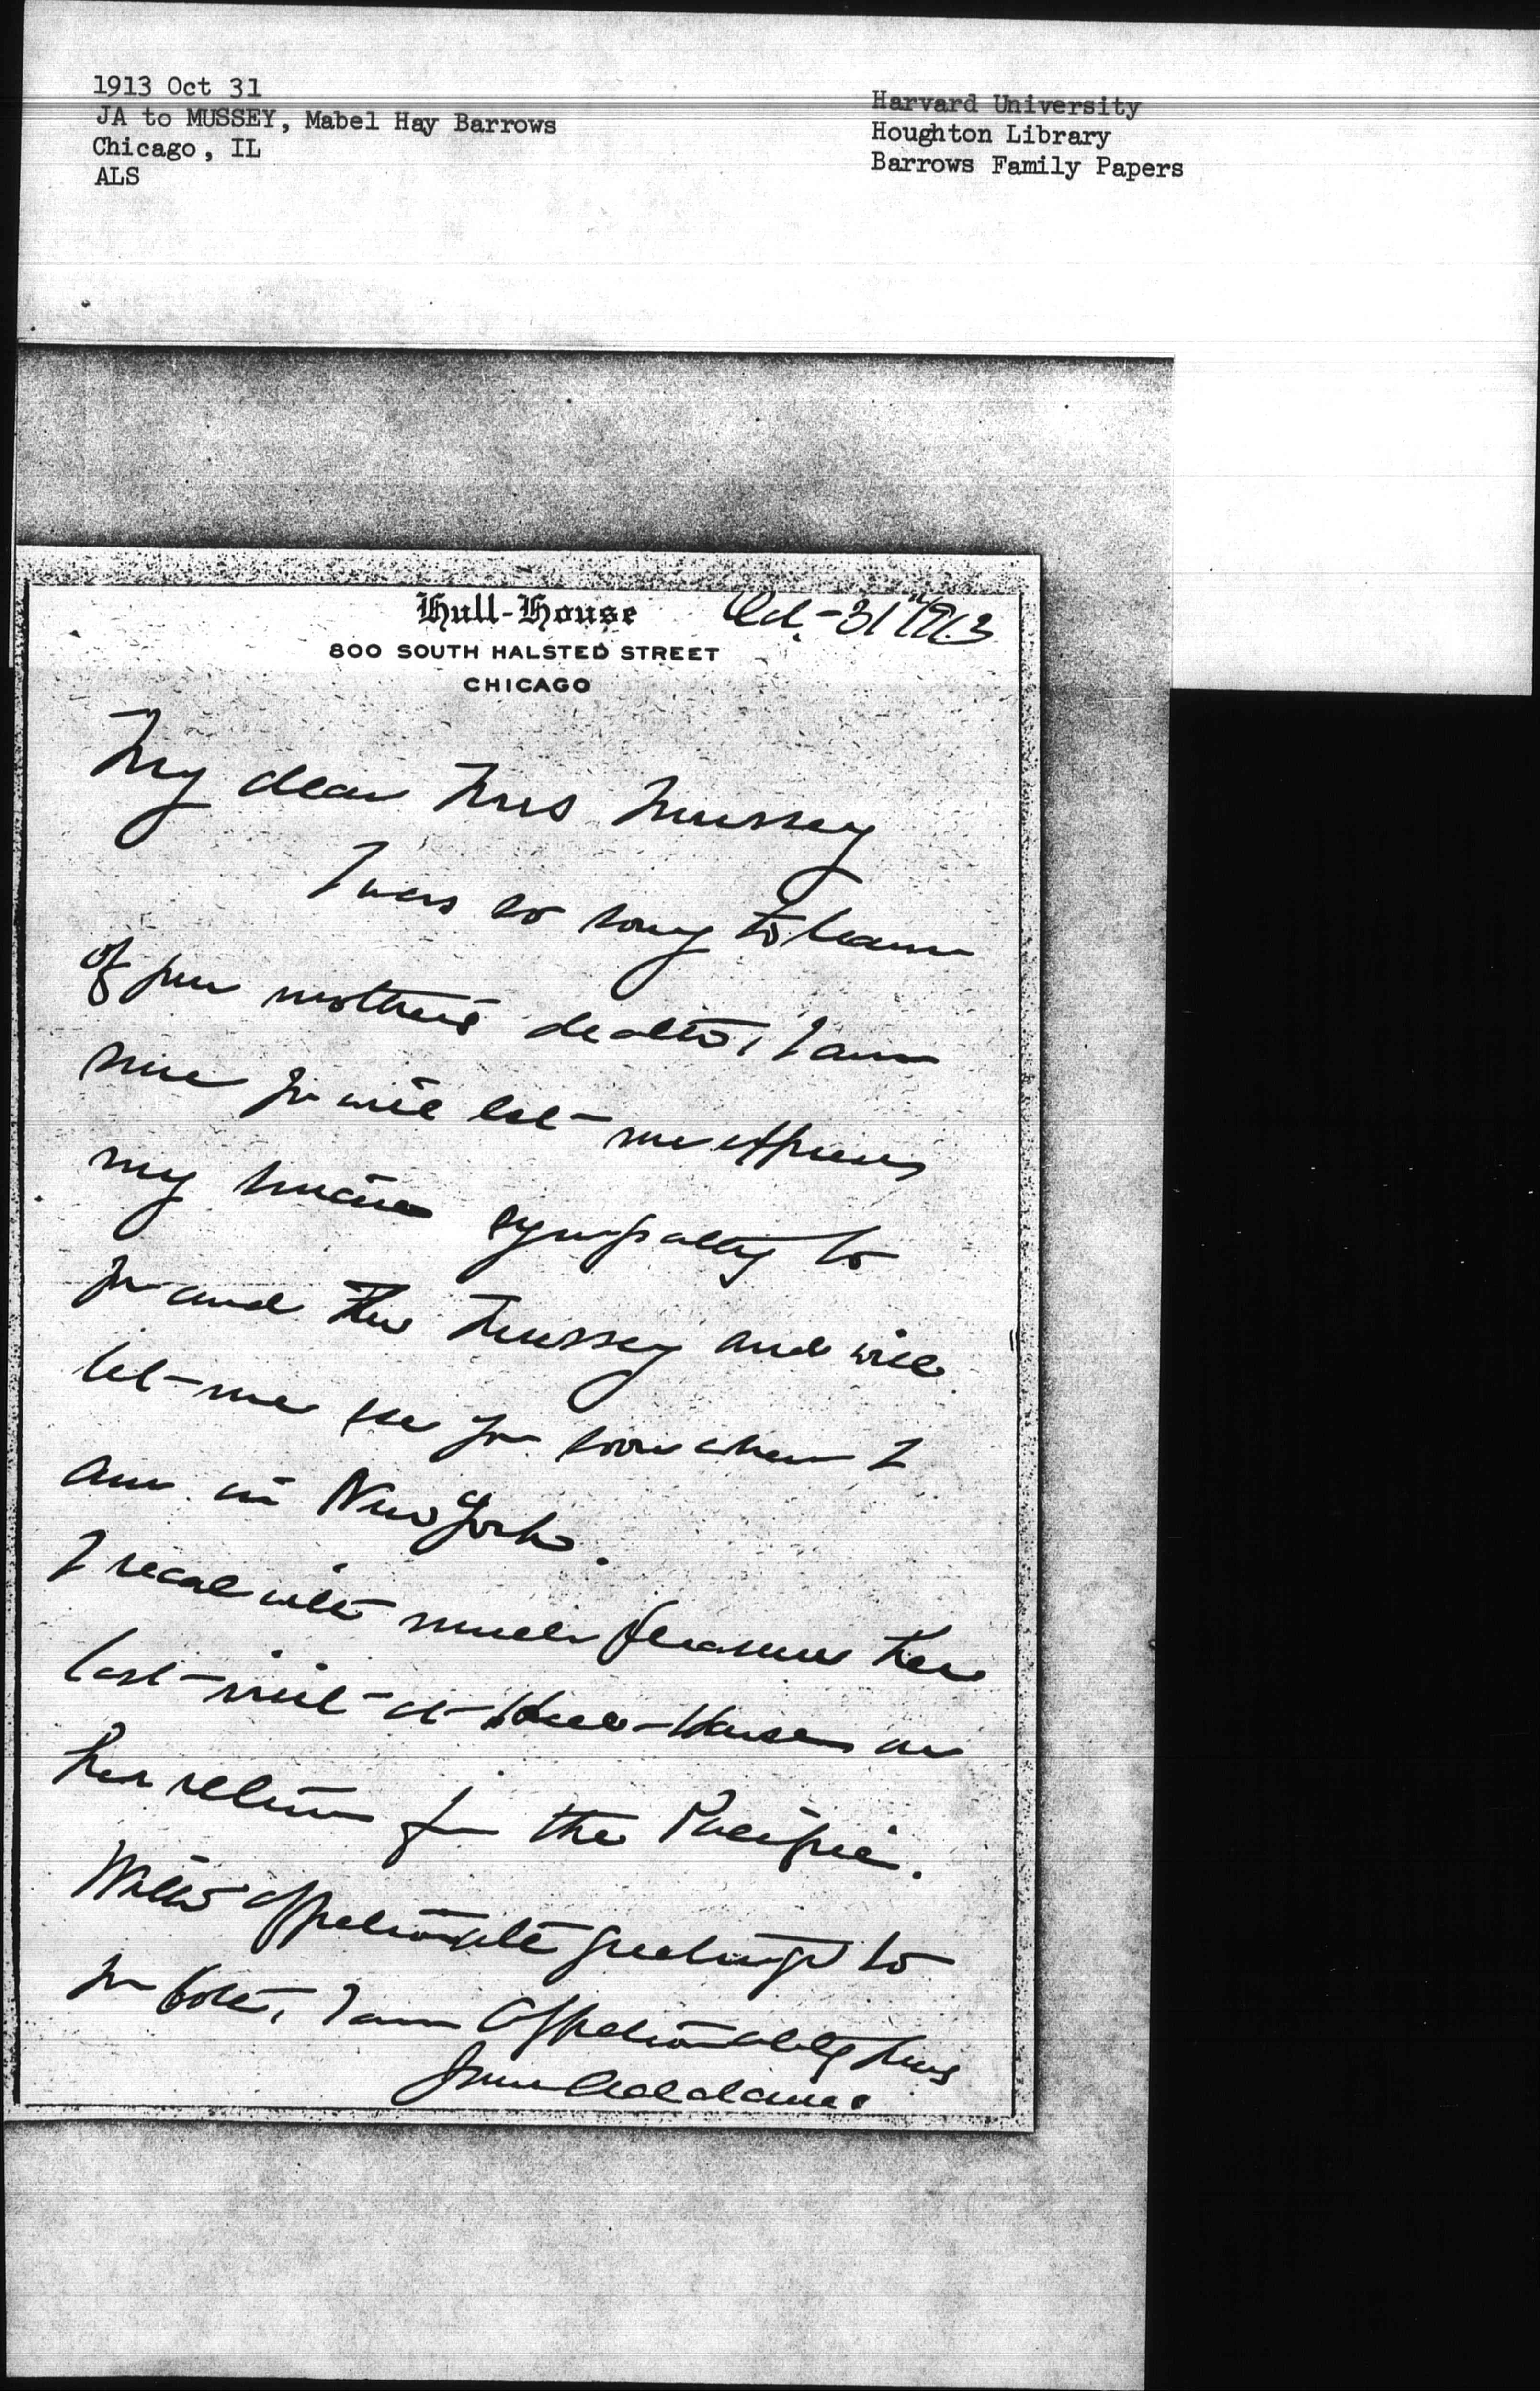 1913 Oct 31
JA to MUSSEY, Mabel Hay Barrows
Chicago, IL
ALS
Harvard University
Houghton Library
Barrows Family Papers
Hull-House
Oct. 31" 1913
800 SOUTH HALSTED STREET
CHICAGO
My dear Mrs Mussey
I was so sorry to learn
of your mother's death, I am
sure you will let me express
my sincere sympathy to
you and Mr Mussey and will
let me see you soon when I
am in New York.
I recall with much pleasure her
last visit at Hull-House on
her return from the Pacific.
With affectionate greetings to
you both, I am affectionately yours
Jane Addams